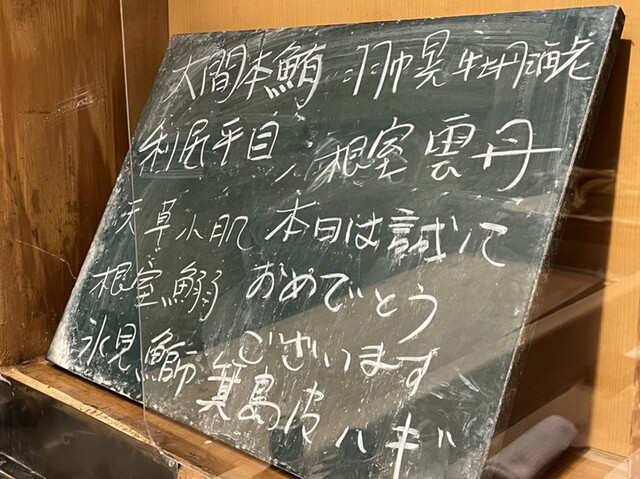 大間本鮪 羽幌 牡丹海老
利尻平目 根室雲丹
天草小肌 本日は誠に
根室鰯 おめでとう
氷見鰤 ございます
箕島皮ハギ